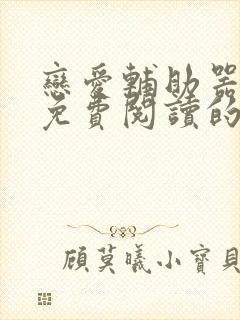 戀愛輔助器
免費閱讀的
顧莫曦小寶貝